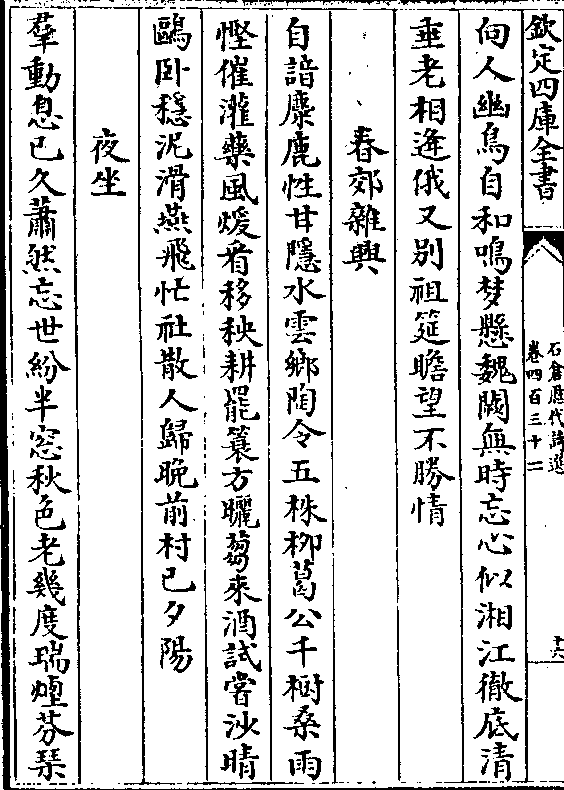 欽定四庫全書
石倉歷代詩選
卷四百三十二
十六
向人幽鳥自和鳴梦懸魏闕無時忘心似湘江徹底清
垂老相逢俄又别祖筵瞻望不勝情
春郊雜興
自諳麋鹿性甘隱水雲鄉陶令五株柳葛公千樹桑雨
慳催灌藥風煖看移秧耕罷簑方曬蒭來酒試嘗沙晴
鷗卧穏泥滑燕飛忙社散人歸晚前村已夕陽
夜坐
羣動息已久蕭然忘世紛半窓秋色老幾度瑞煙芬琹